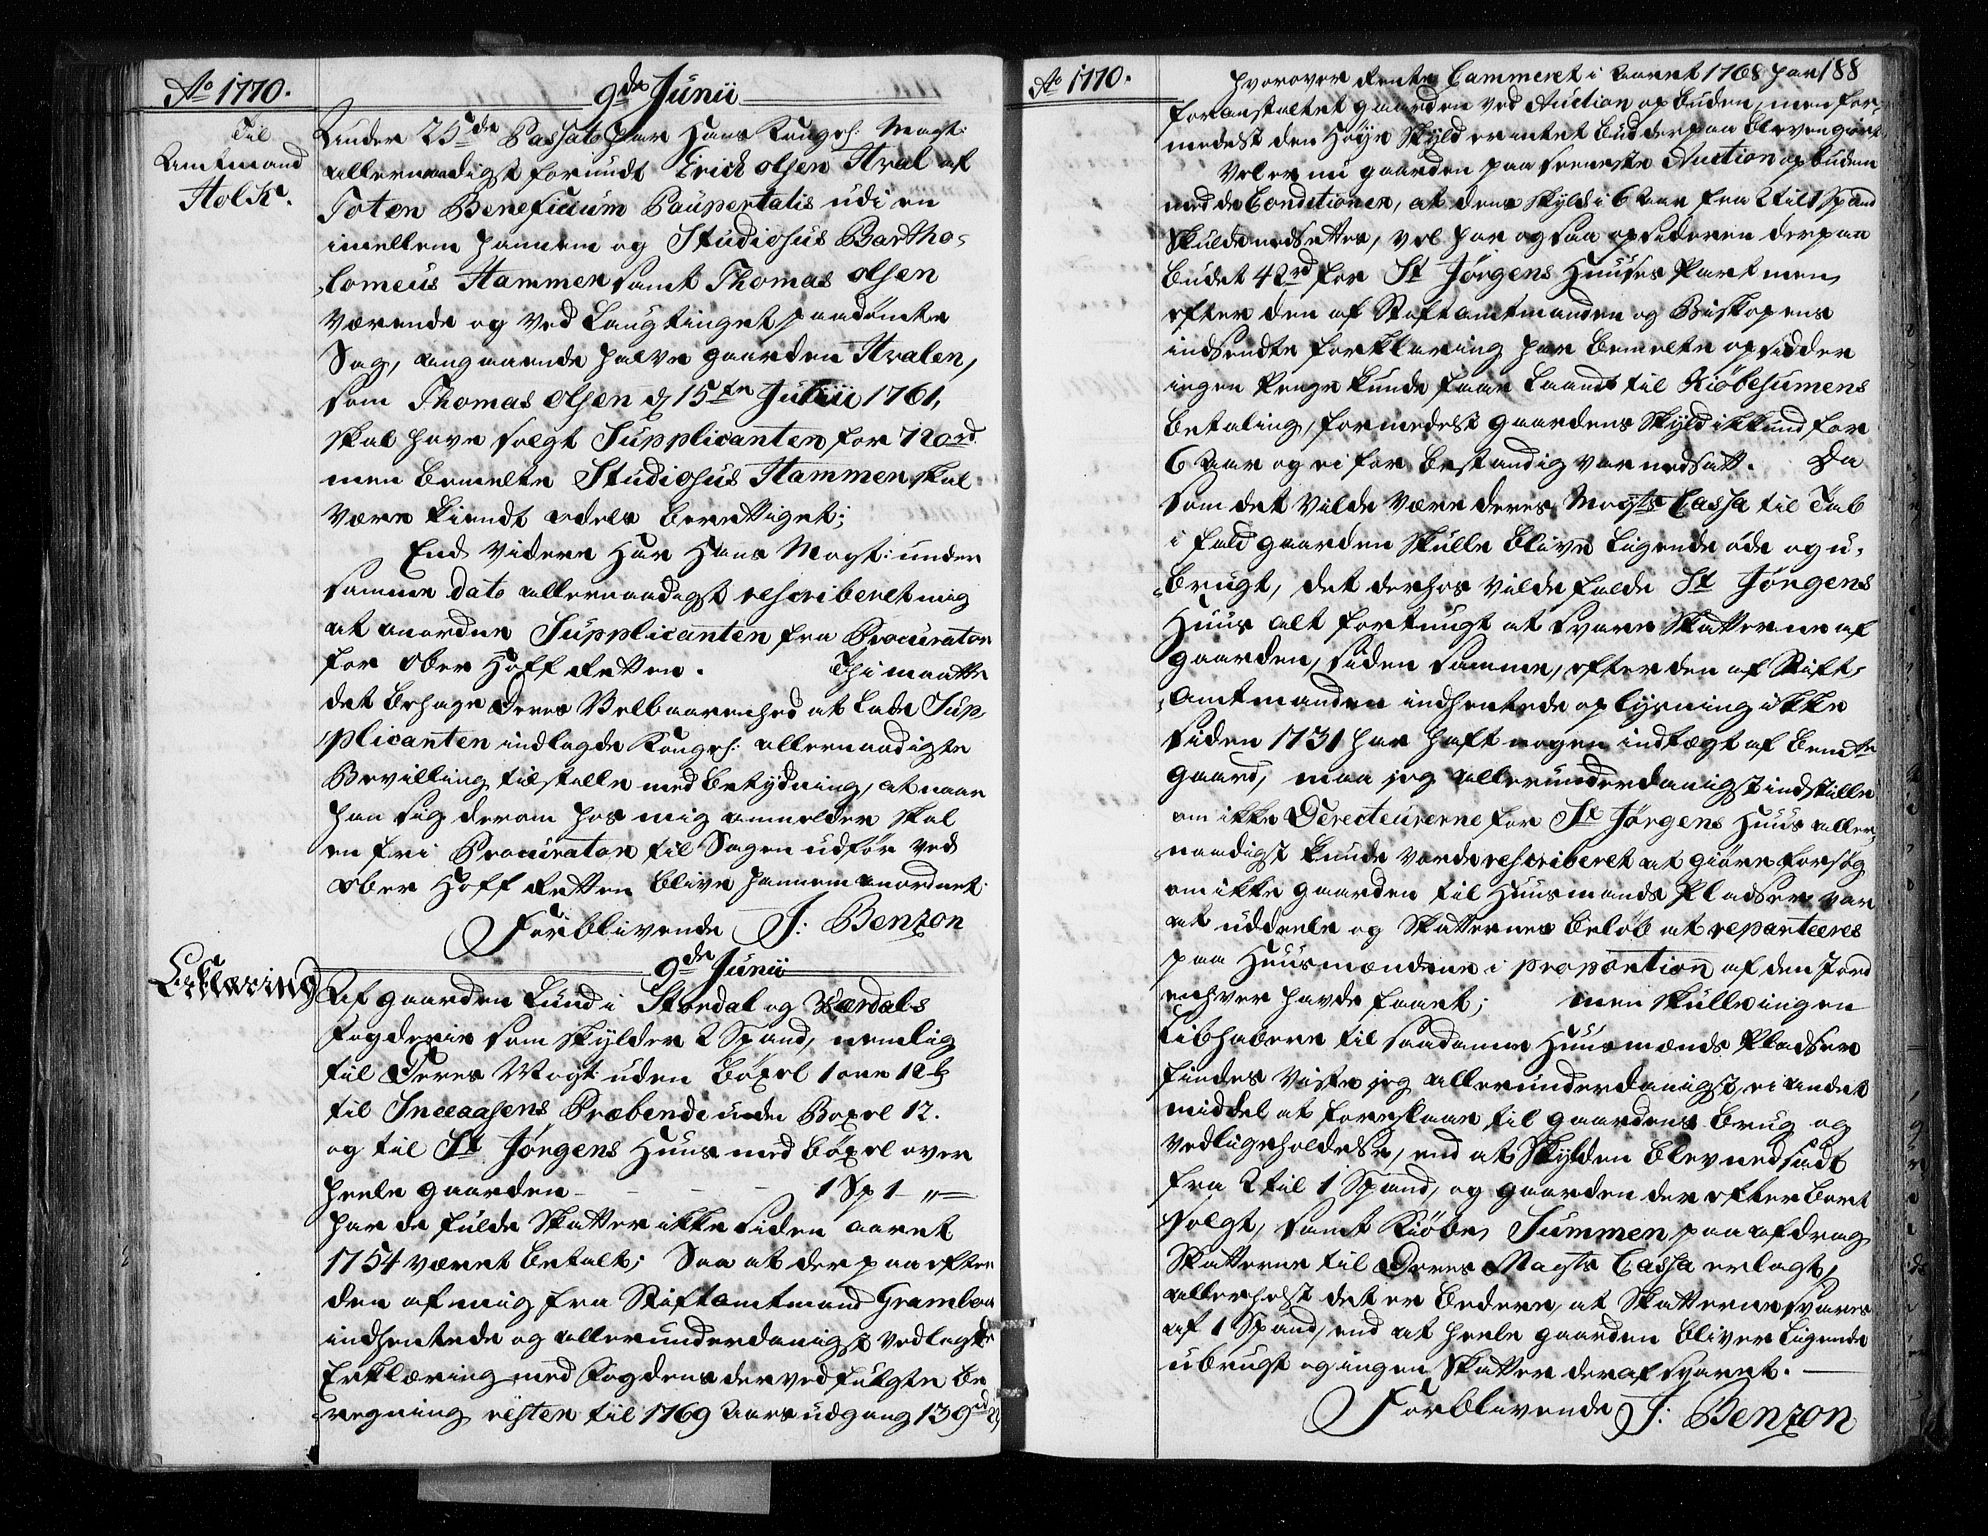 Ao 1770.
9de Junii
Til
Amtmand
Holck.
Under 25de Passato har Hans Kongel: Mayt:
allernaadigst forundt Erick Olsen Hval af
Toten Beneficium Paupertatis udi en
imellem hannem og Studiosus Bartho-
lomeus Hammer samt Thomas Olsen
værende og ved Laugtinget paadømte
Sag, angaaende halve gaarden Hvalen,
som Thomas Olsen d 15te Julii 1761,
skal have solgt Supplicanten for 720rd
men bemelte Studiosus Hammer skal
være kiendt odels berettiget;
End videre Har Hans Mayt: under
samme dato allernaadigst rescriberet mig
at anordne Supplicanten fra Procurator
for Ober Hoff Retten. Thi maatte
det behage Deres Velbaarenhed at lade Sup-
plicanten indlagde Kongel: allernaadigste
Bevilling tilstelle med betydning, at naar
han sig derom hos mig anmelder skal
en fri Procurator til Sagen udfør ved
Ober Hoff Retten blive hannem anordnet.
Forblivende J: Benzon
9de Junii
Erklæring
Af gaarden Lund i Stordal og Værdals
Fogderie som skylder 2 Spand, nemlig
til Deres Mayt: uden Böxel 1 øre 12
til Sneaasens Præbende uden Boxel 12.
og til St Jørgens Huus med böxel over
heele gaarden - - - - 1 Sp 1 - "
har de fulde Skatter ikke siden aaret
1754 været betalt; Saa at der paa efter
den af mig fra Stiftamtmand Grambou
indhentede og allerunderdanigst vedlagte
Erklæring med Fogdens derved fulgte be
regning rester til 1769 Aars udgang 139rd
Ao 1770.
188
hvorover Rente Cammeret i Aaret 1768 har
foranstaltet gaarden ved Auction opbuden, men for-
medest den høye Skyld er intet bud derpaa bleven giort
Vel er nu gaarden paa seeneste Auction opbuden
med de Conditioner, at dens Skyld i 6 Aar fra 2 til 1 Spand
skulde nedsettes, vel har og saa opsidderen derpaa
budet 42rd for St Jørgens Huuses Part men
efter den af Stiftamtmanden og Biskopens
indsendte forklaring har bemelte opsidder
ingen Penge kunde faae Laant til Kiöbesumens
betaling, formedest gaardens Skyld ikkund for
6 Aar og ei for bestandig var nedsatt. Da
som det vilde være deres Mayts Cassa til Tab
i fald gaarden skulle blive liigende øde og u-
brugt, det derhos vilde falde St Jørgens
Huus alt for tungt at svare Skatterne af
gaarden, siden samme, efter den af Stift-
Amtmanden indhentede oplysning ikke
siden 1731 har haft nogen indtægt af bemte
gaard, maa jeg allerunderdanigst indstille
om ikke Directeurerne for St Jørgens Huus aller-
naadigst kunde vorde rescriberet at giøre forsøg
om ikke gaarden til Huusmands Pladser var
at uddeele og Skatternes beløb at reparteeres
paa Huusmændene i proportion af den Jord
enhver havde faaet; men skulle ingen
Liebhabere til saadanne Huusmænds Pladser
findes viste jeg allerunderdanigst ei andet
middel at foreslaae til gaardens brug og
vedligeholdelse, end at Skylden blev nedsadt
fra 2 til 1 Spand, og gaarden derefter bort
solgt, samt Kiöbe Summen paa afdrag
Skatterne til Deres Mayts Cassa erlagt,
allerhelst det er bedere, at Skatterne svares
af 1 Spand, end at heele gaarden bliver liigende
ubrugt og ingen Skatter deraf svaret.
Forblivende J: Benzon